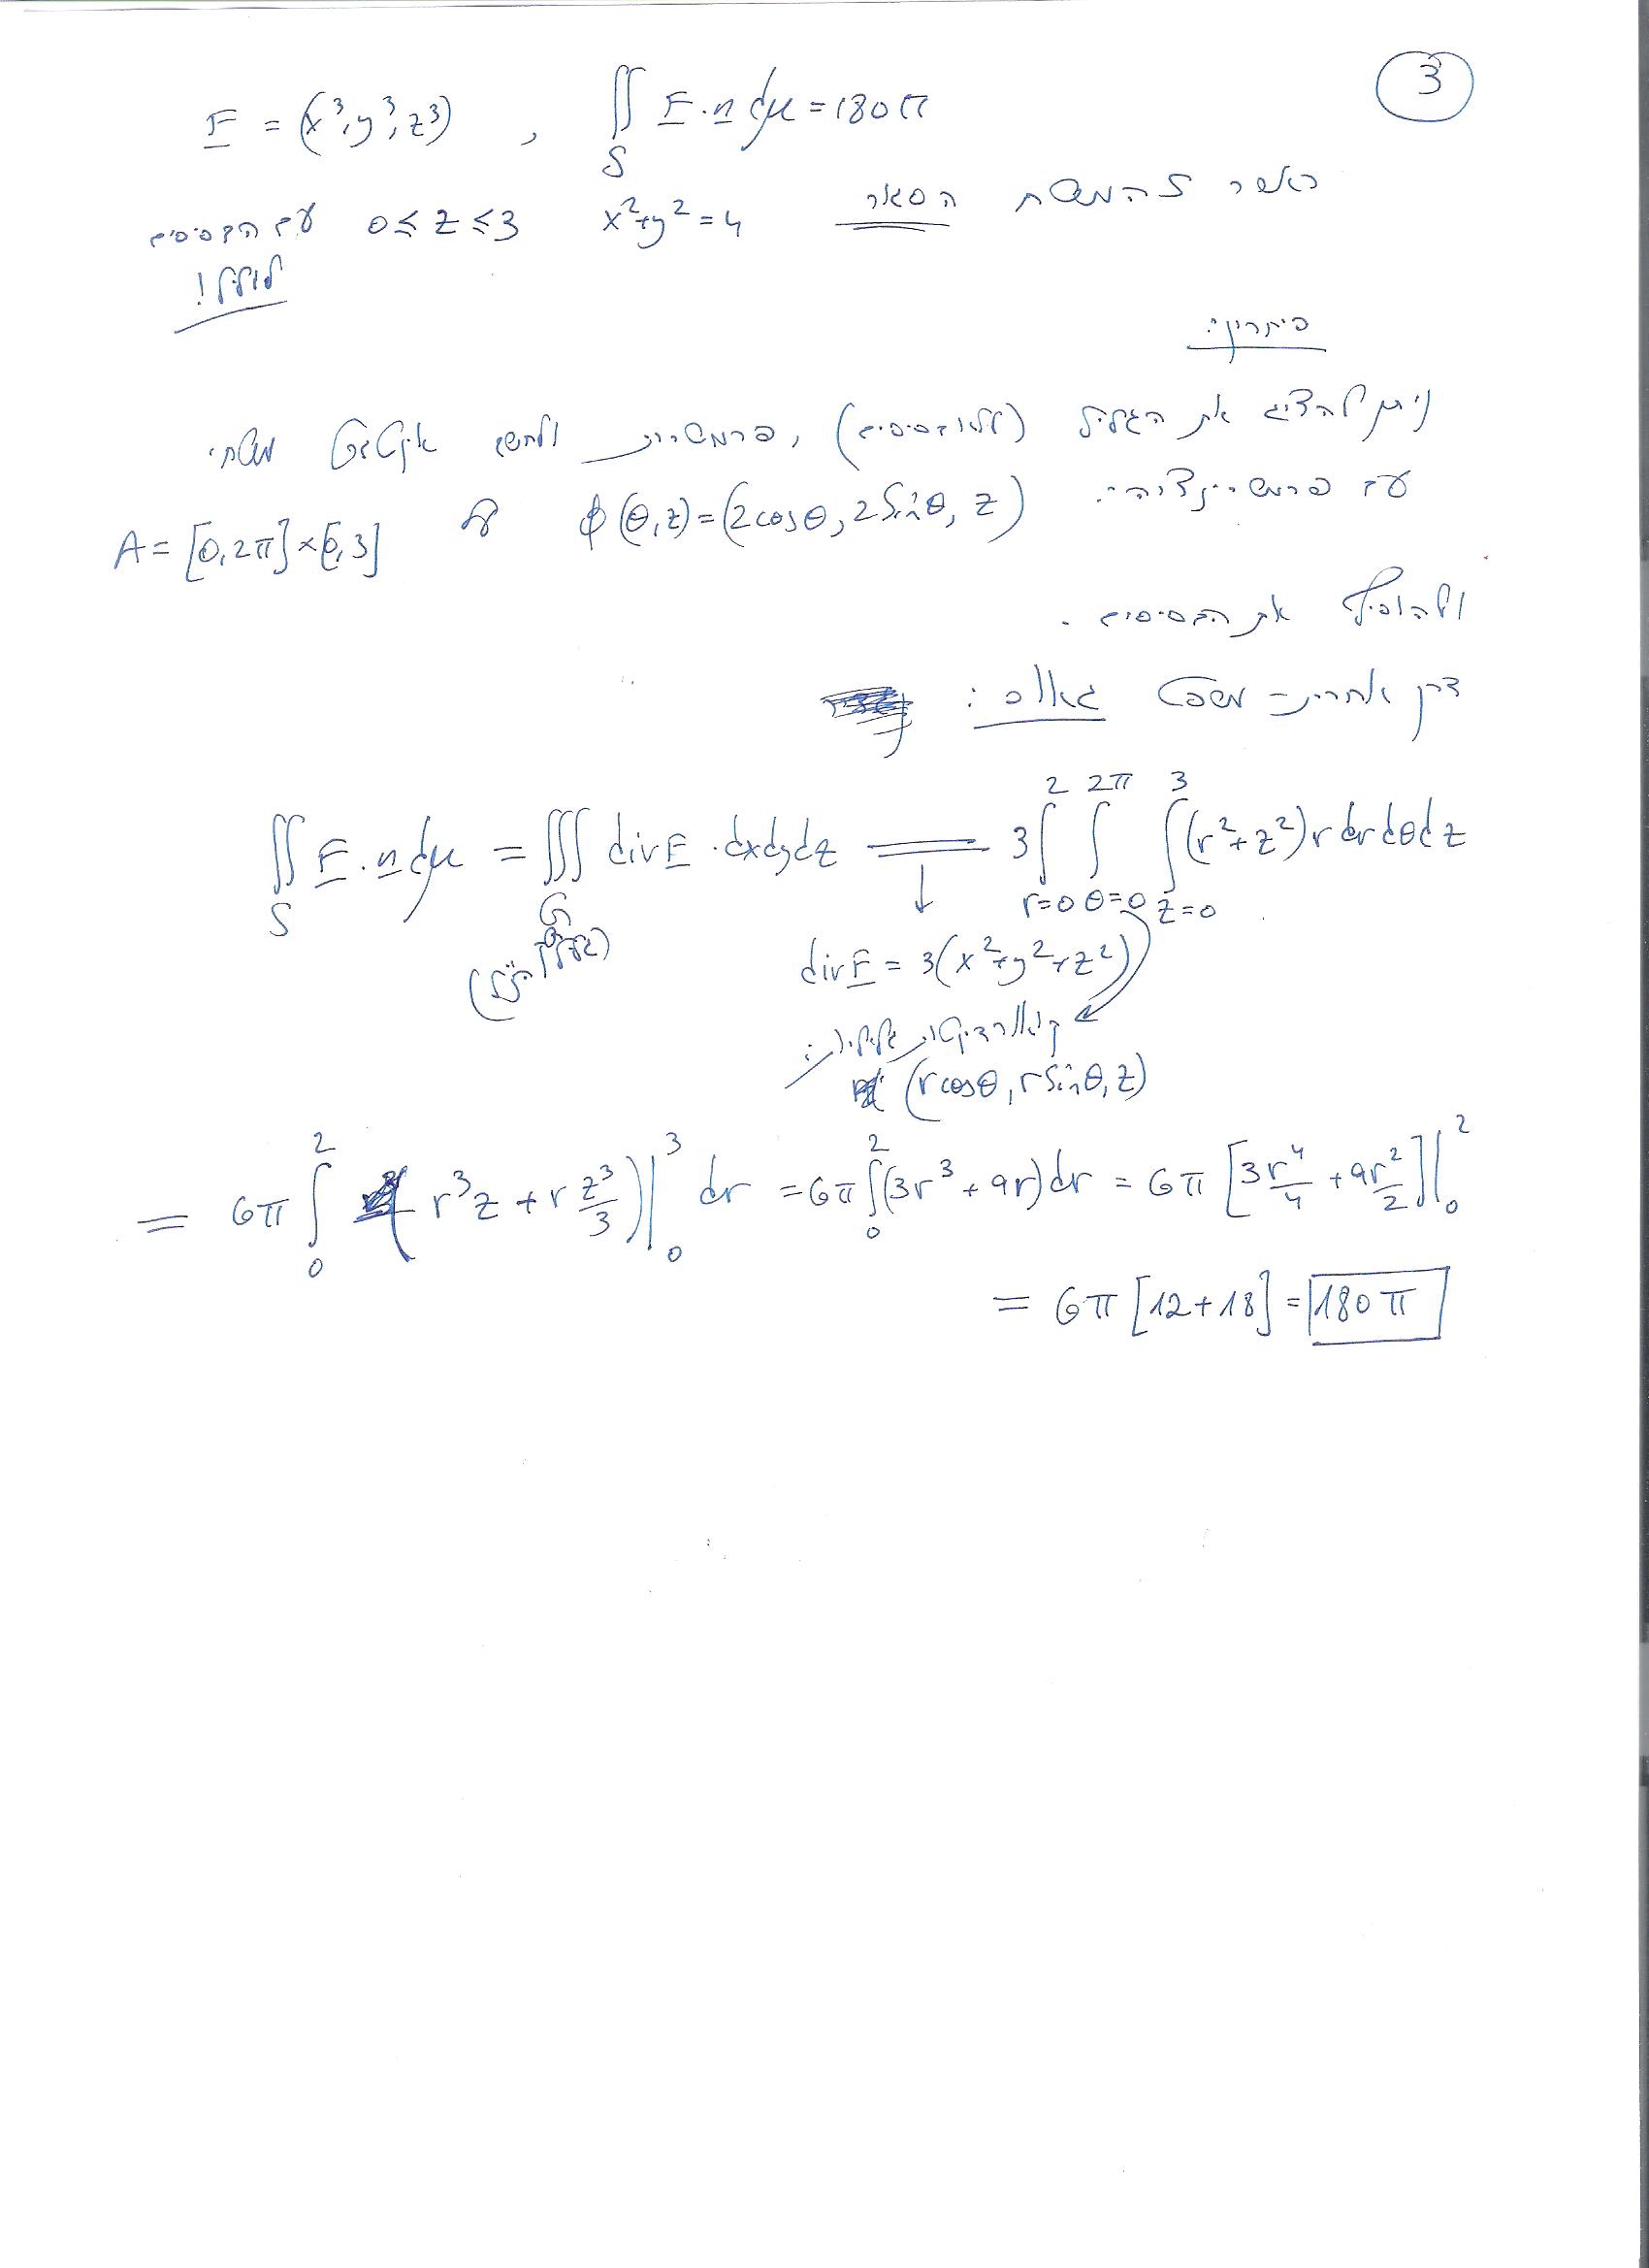 3
F = (x³, y³, z³) , ∬_S F·n dμ = 180π
כאשר S המשטח הסגור x²+y²=4 0≤z≤3 עם הבסיסים
כולל!
פיתרון:
ניתן להציג את הגליל (ללא בסיסים), פרמטרית ולחשב אינטגרל משטחי
עם פרמטריזציה: ϕ(θ,z)=(2cosθ, 2sinθ, z) על A=[0,2π]×[0,3]
ולהוסיף את הבסיסים.
דרך אחרת - משפט גאוס:
∬_S F·n dμ = ∭_G divF·dxdydz = 3∫_{r=0}^{2}∫_{θ=0}^{2π}∫_{z=0}^{3}(r²+z²)r dr dθ dz
divF = 3(x²+y²+z²)
קואורדינטות גליליות:
(r cosθ, r sinθ, z)
= 6π∫_0^2 (r³z + r z³/3)|_0^3 dr = 6π∫_0^2(3r³+9r)dr = 6π[3r⁴/4 + 9r²/2]|_0^2
= 6π[12+18] = 180π